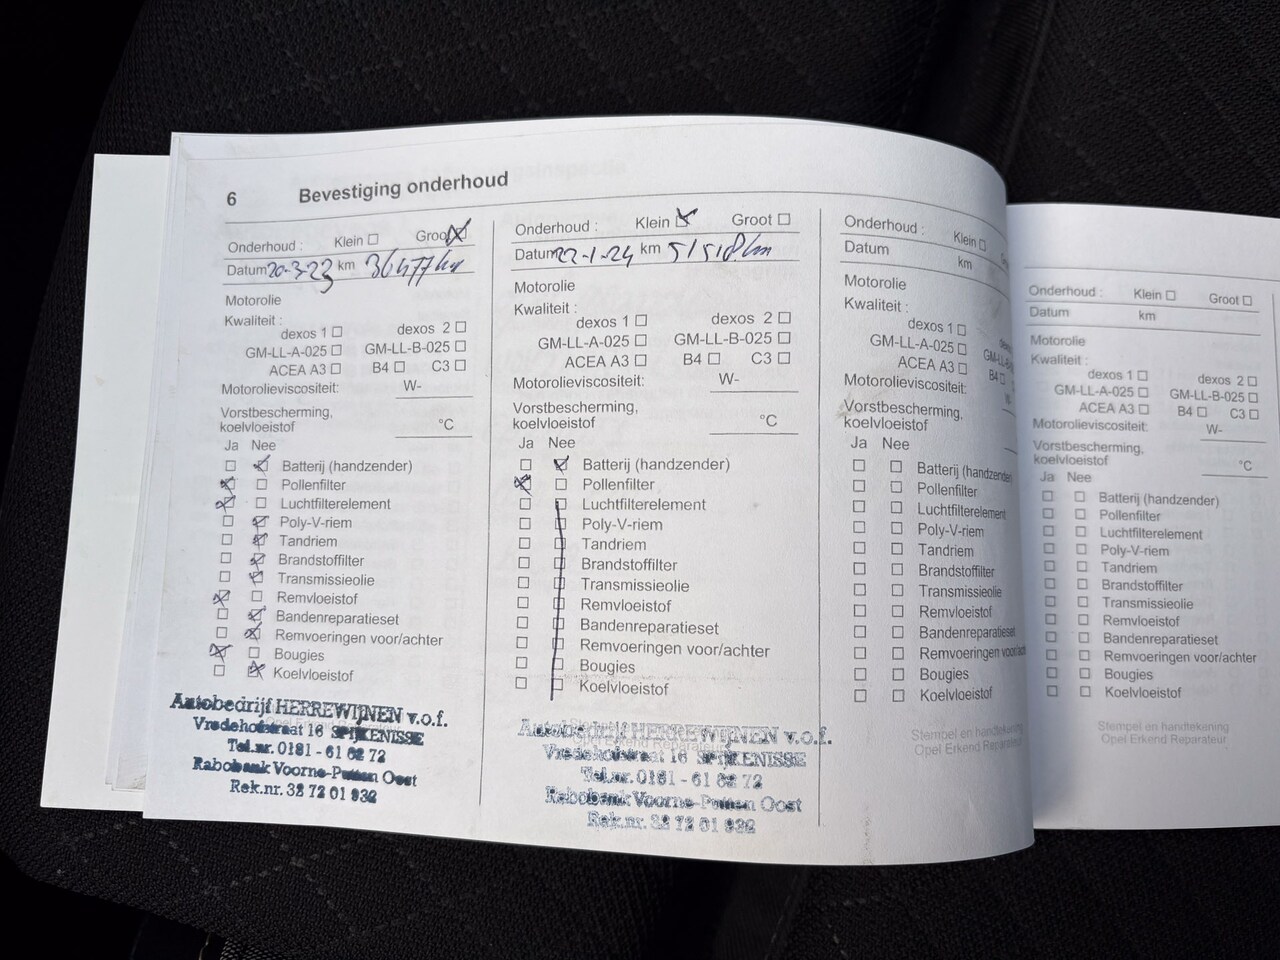 6 Bevestiging onderhoud
Onderhoud : Klein ☐ Groot ☒
Datum 20-3-23 km 36477 km
Motorolie
Kwaliteit :
dexos 1 ☐ dexos 2 ☐
GM-LL-A-025 ☐ GM-LL-B-025 ☐
ACEA A3 ☐ B4 ☐ C3 ☐
Motorolieviscositeit: W-
Vorstbescherming,
koelvloeistof °C
Ja Nee
☐ ☒ Batterij (handzender)
☒ ☐ Pollenfilter
☒ ☐ Luchtfilterelement
☐ ☒ Poly-V-riem
☐ ☒ Tandriem
☐ ☒ Brandstoffilter
☐ ☒ Transmissieolie
☒ ☐ Remvloeistof
☐ ☒ Bandenreparatieset
☐ ☒ Remvoeringen voor/achter
☒ ☐ Bougies
☐ ☒ Koelvloeistof
Autobedrijf HERREWIJNEN v.o.f.
Vredehofstraat 16 SPIJKENISSE
Tel.nr. 0181 - 61 62 72
Rabobank Voorne-Putten Oost
Rek.nr. 32 72 01 932
Onderhoud : Klein ☒ Groot ☐
Datum 22-1-24 km 51518 km
Motorolie
Kwaliteit :
dexos 1 ☐ dexos 2 ☐
GM-LL-A-025 ☐ GM-LL-B-025 ☐
ACEA A3 ☐ B4 ☐ C3 ☐
Motorolieviscositeit: W-
Vorstbescherming,
koelvloeistof °C
Ja Nee
☐ ☒ Batterij (handzender)
☒ ☐ Pollenfilter
☐ ☐ Luchtfilterelement
☐ ☐ Poly-V-riem
☐ ☐ Tandriem
☐ ☐ Brandstoffilter
☐ ☐ Transmissieolie
☐ ☐ Remvloeistof
☐ ☐ Bandenreparatieset
☐ ☐ Remvoeringen voor/achter
☐ ☐ Bougies
☐ ☐ Koelvloeistof
Autobedrijf HERREWIJNEN v.o.f.
Vredehofstraat 16 SPIJKENISSE
Tel.nr. 0181 - 61 62 72
Rabobank Voorne-Putten Oost
Rek.nr. 32 72 01 932
Onderhoud : Klein ☐
Datum km
Motorolie
Kwaliteit :
dexos 1 ☐
GM-LL-A-025 ☐
ACEA A3 ☐ B4 ☐
Motorolieviscositeit:
Vorstbescherming,
koelvloeistof
Ja Nee
☐ ☐ Batterij (handzender)
☐ ☐ Pollenfilter
☐ ☐ Luchtfilterelement
☐ ☐ Poly-V-riem
☐ ☐ Tandriem
☐ ☐ Brandstoffilter
☐ ☐ Transmissieolie
☐ ☐ Remvloeistof
☐ ☐ Bandenreparatieset
☐ ☐ Remvoeringen
☐ ☐ Bougies
☐ ☐ Koelvloeistof
Stempel en handtekening
Opel Erkend Reparateur
Onderhoud : Klein ☐ Groot ☐
Datum km
Motorolie
Kwaliteit :
dexos 1 ☐ dexos 2 ☐
GM-LL-A-025 ☐ GM-LL-B-025 ☐
ACEA A3 ☐ B4 ☐ C3 ☐
Motorolieviscositeit: W-
Vorstbescherming,
koelvloeistof °C
Ja Nee
☐ ☐ Batterij (handzender)
☐ ☐ Pollenfilter
☐ ☐ Luchtfilterelement
☐ ☐ Poly-V-riem
☐ ☐ Tandriem
☐ ☐ Brandstoffilter
☐ ☐ Transmissieolie
☐ ☐ Remvloeistof
☐ ☐ Bandenreparatieset
☐ ☐ Remvoeringen voor/achter
☐ ☐ Bougies
☐ ☐ Koelvloeistof
Stempel en handtekening
Opel Erkend Reparateur